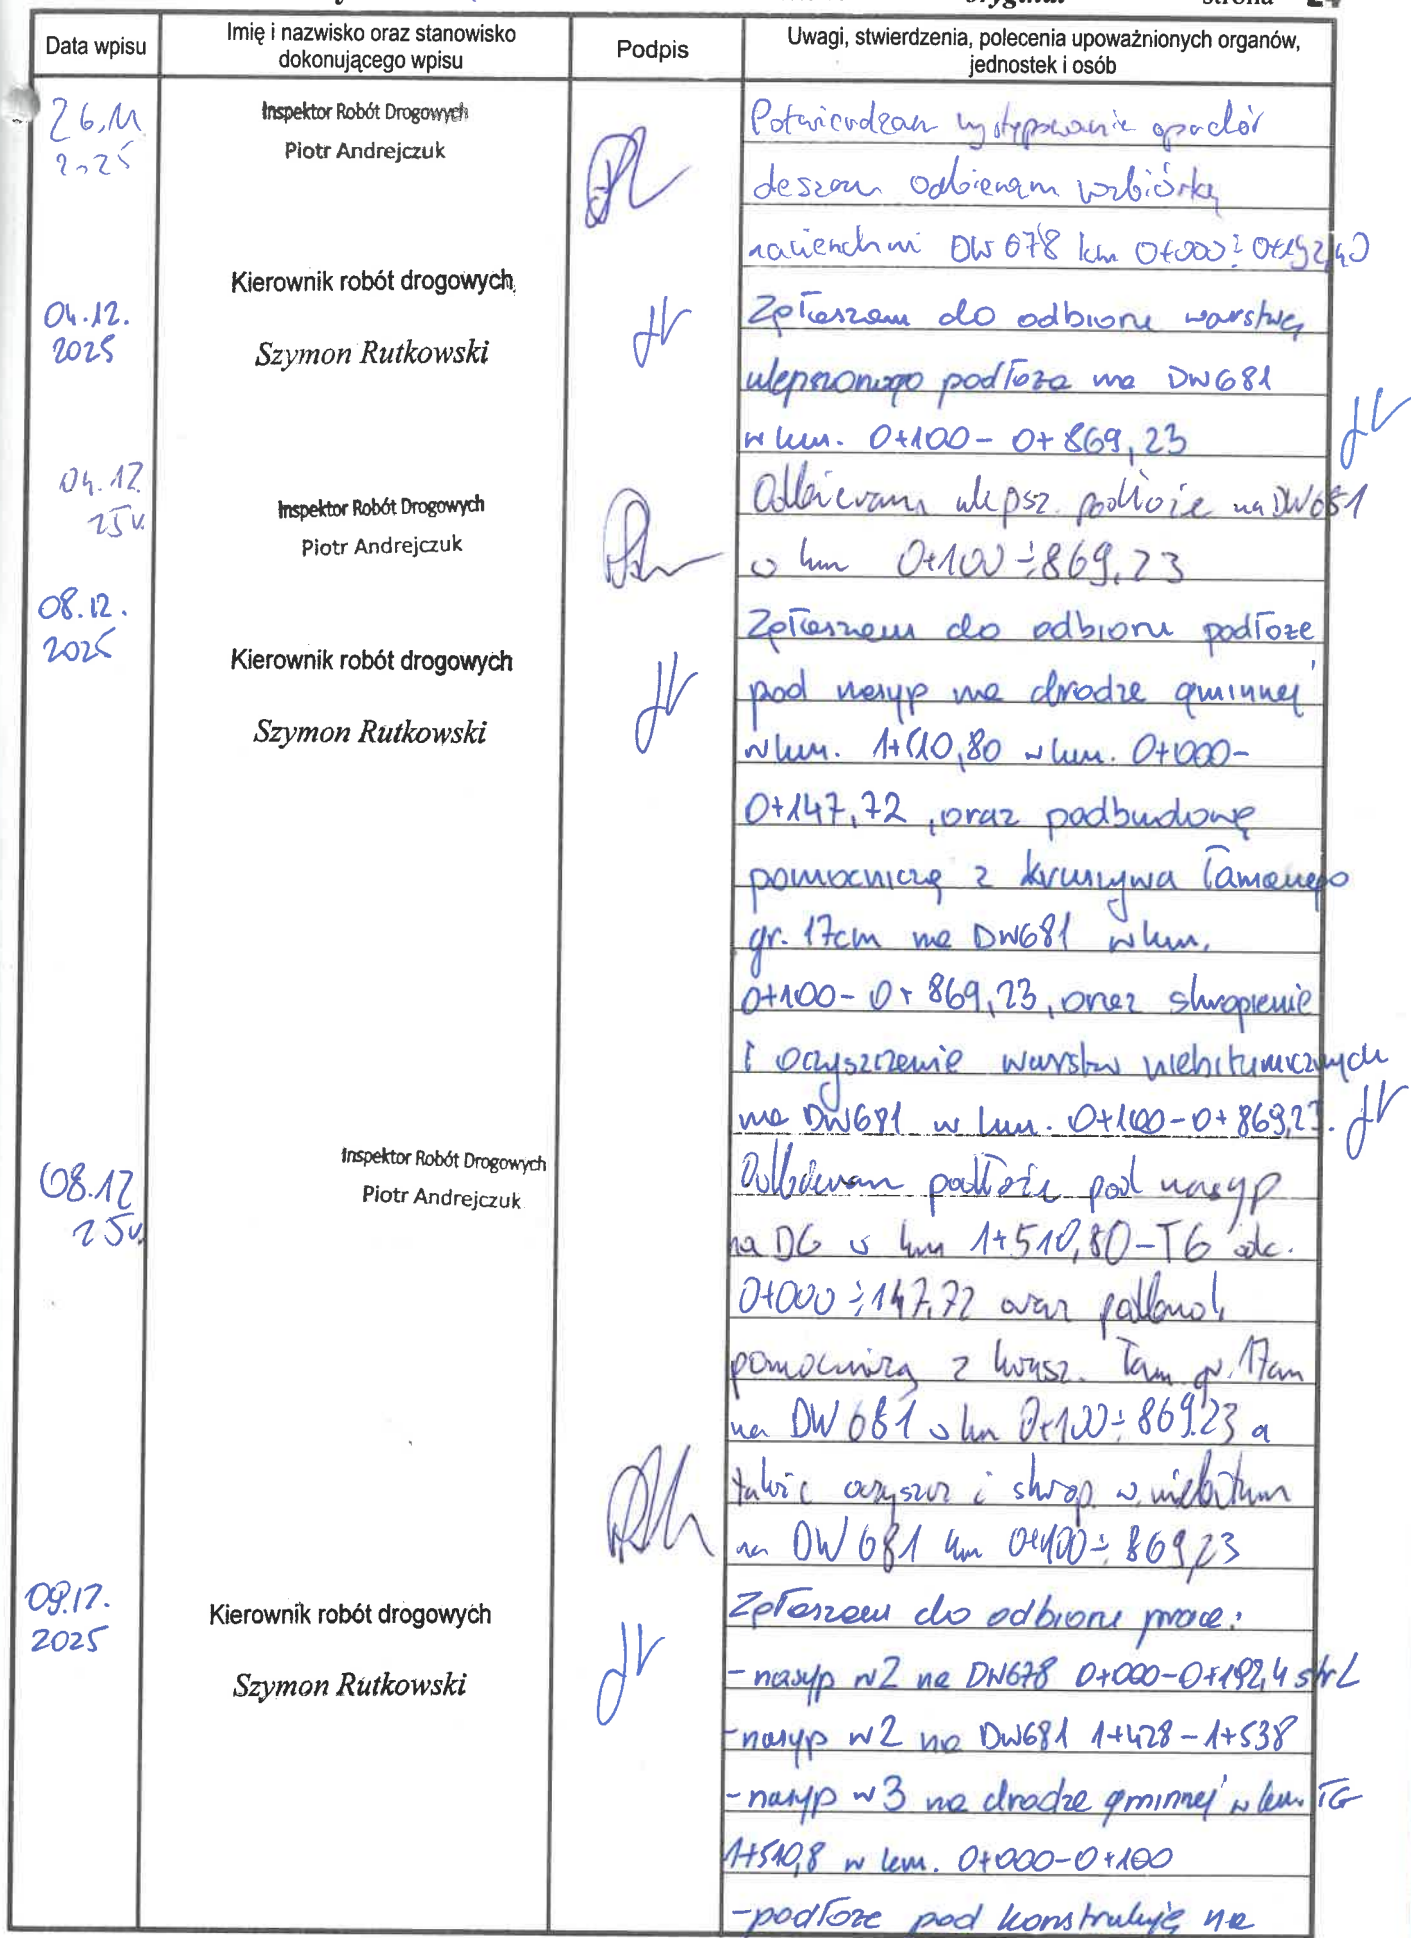 oryginał strona 24
Data wpisu
Imię i nazwisko oraz stanowisko
dokonującego wpisu
Podpis
Uwagi, stwierdzenia, polecenia upoważnionych organów,
jednostek i osób
26.11
2025
Inspektor Robót Drogowych
Piotr Andrejczuk
Potwierdzam występowanie opadów
deszczu odbieram rozbiórkę
nawierzchni DW 678 km 0+000÷0+192,40
04.12.
2025
Kierownik robót drogowych
Szymon Rutkowski
Zgłaszam do odbioru warstwę
ulepszonego podłoża na DW681
w km. 0+100-0+869,23
04.12.
25r.
Inspektor Robót Drogowych
Piotr Andrejczuk
Odbieram ulepsz. podłoże na DW681
w km 0+100÷869,23
08.12.
2025
Kierownik robót drogowych
Szymon Rutkowski
Zgłaszam do odbioru podłoże
pod nasyp na drodze gminnej
w km. 1+510,80 w km. 0+000-
0+147,72, oraz podbudowę
pomocniczą z kruszywa łamanego
gr. 17cm na DW681 w km.
0+100-0+869,23, oraz skropienie
i oczyszczenie warstw niebitumicznych
na DW681 w km. 0+100-0+869,23.
08.12
25r.
Inspektor Robót Drogowych
Piotr Andrejczuk
Odbieram podłoże pod nasyp
na DG w km 1+510,80-TG odc.
0+000÷147,72 oraz podbud.
pomocniczą z krusz. łam. gr. 17cm
na DW 681 w km 0+100÷869.23 a
także oczyszcz i skrop. w. niebitum
na DW 681 km 0+100÷869,23
09.12.
2025
Kierownik robót drogowych
Szymon Rutkowski
Zgłaszam do odbioru prace:
-nasyp w2 na DW678 0+000-0+192,4 str L
-nasyp w2 na DW681 1+428-1+538
-nasyp w3 na drodze gminnej w km. TG
1+510,8 w km. 0+000-0+100
-podłoże pod konstrukcję na